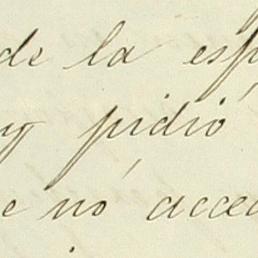 de la esp
y pidió
e nó acced